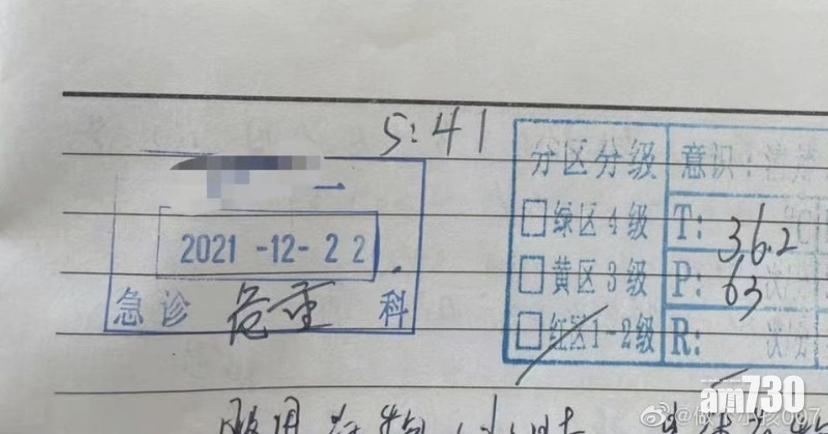 5:41
分区分级 意识：清楚
2021-12-22
绿区4级 T: 36.2 ℃
黄区3级 P: 63 次/分
急诊 危重 科
红区1-2级 R: 次/分
服用药物
am730